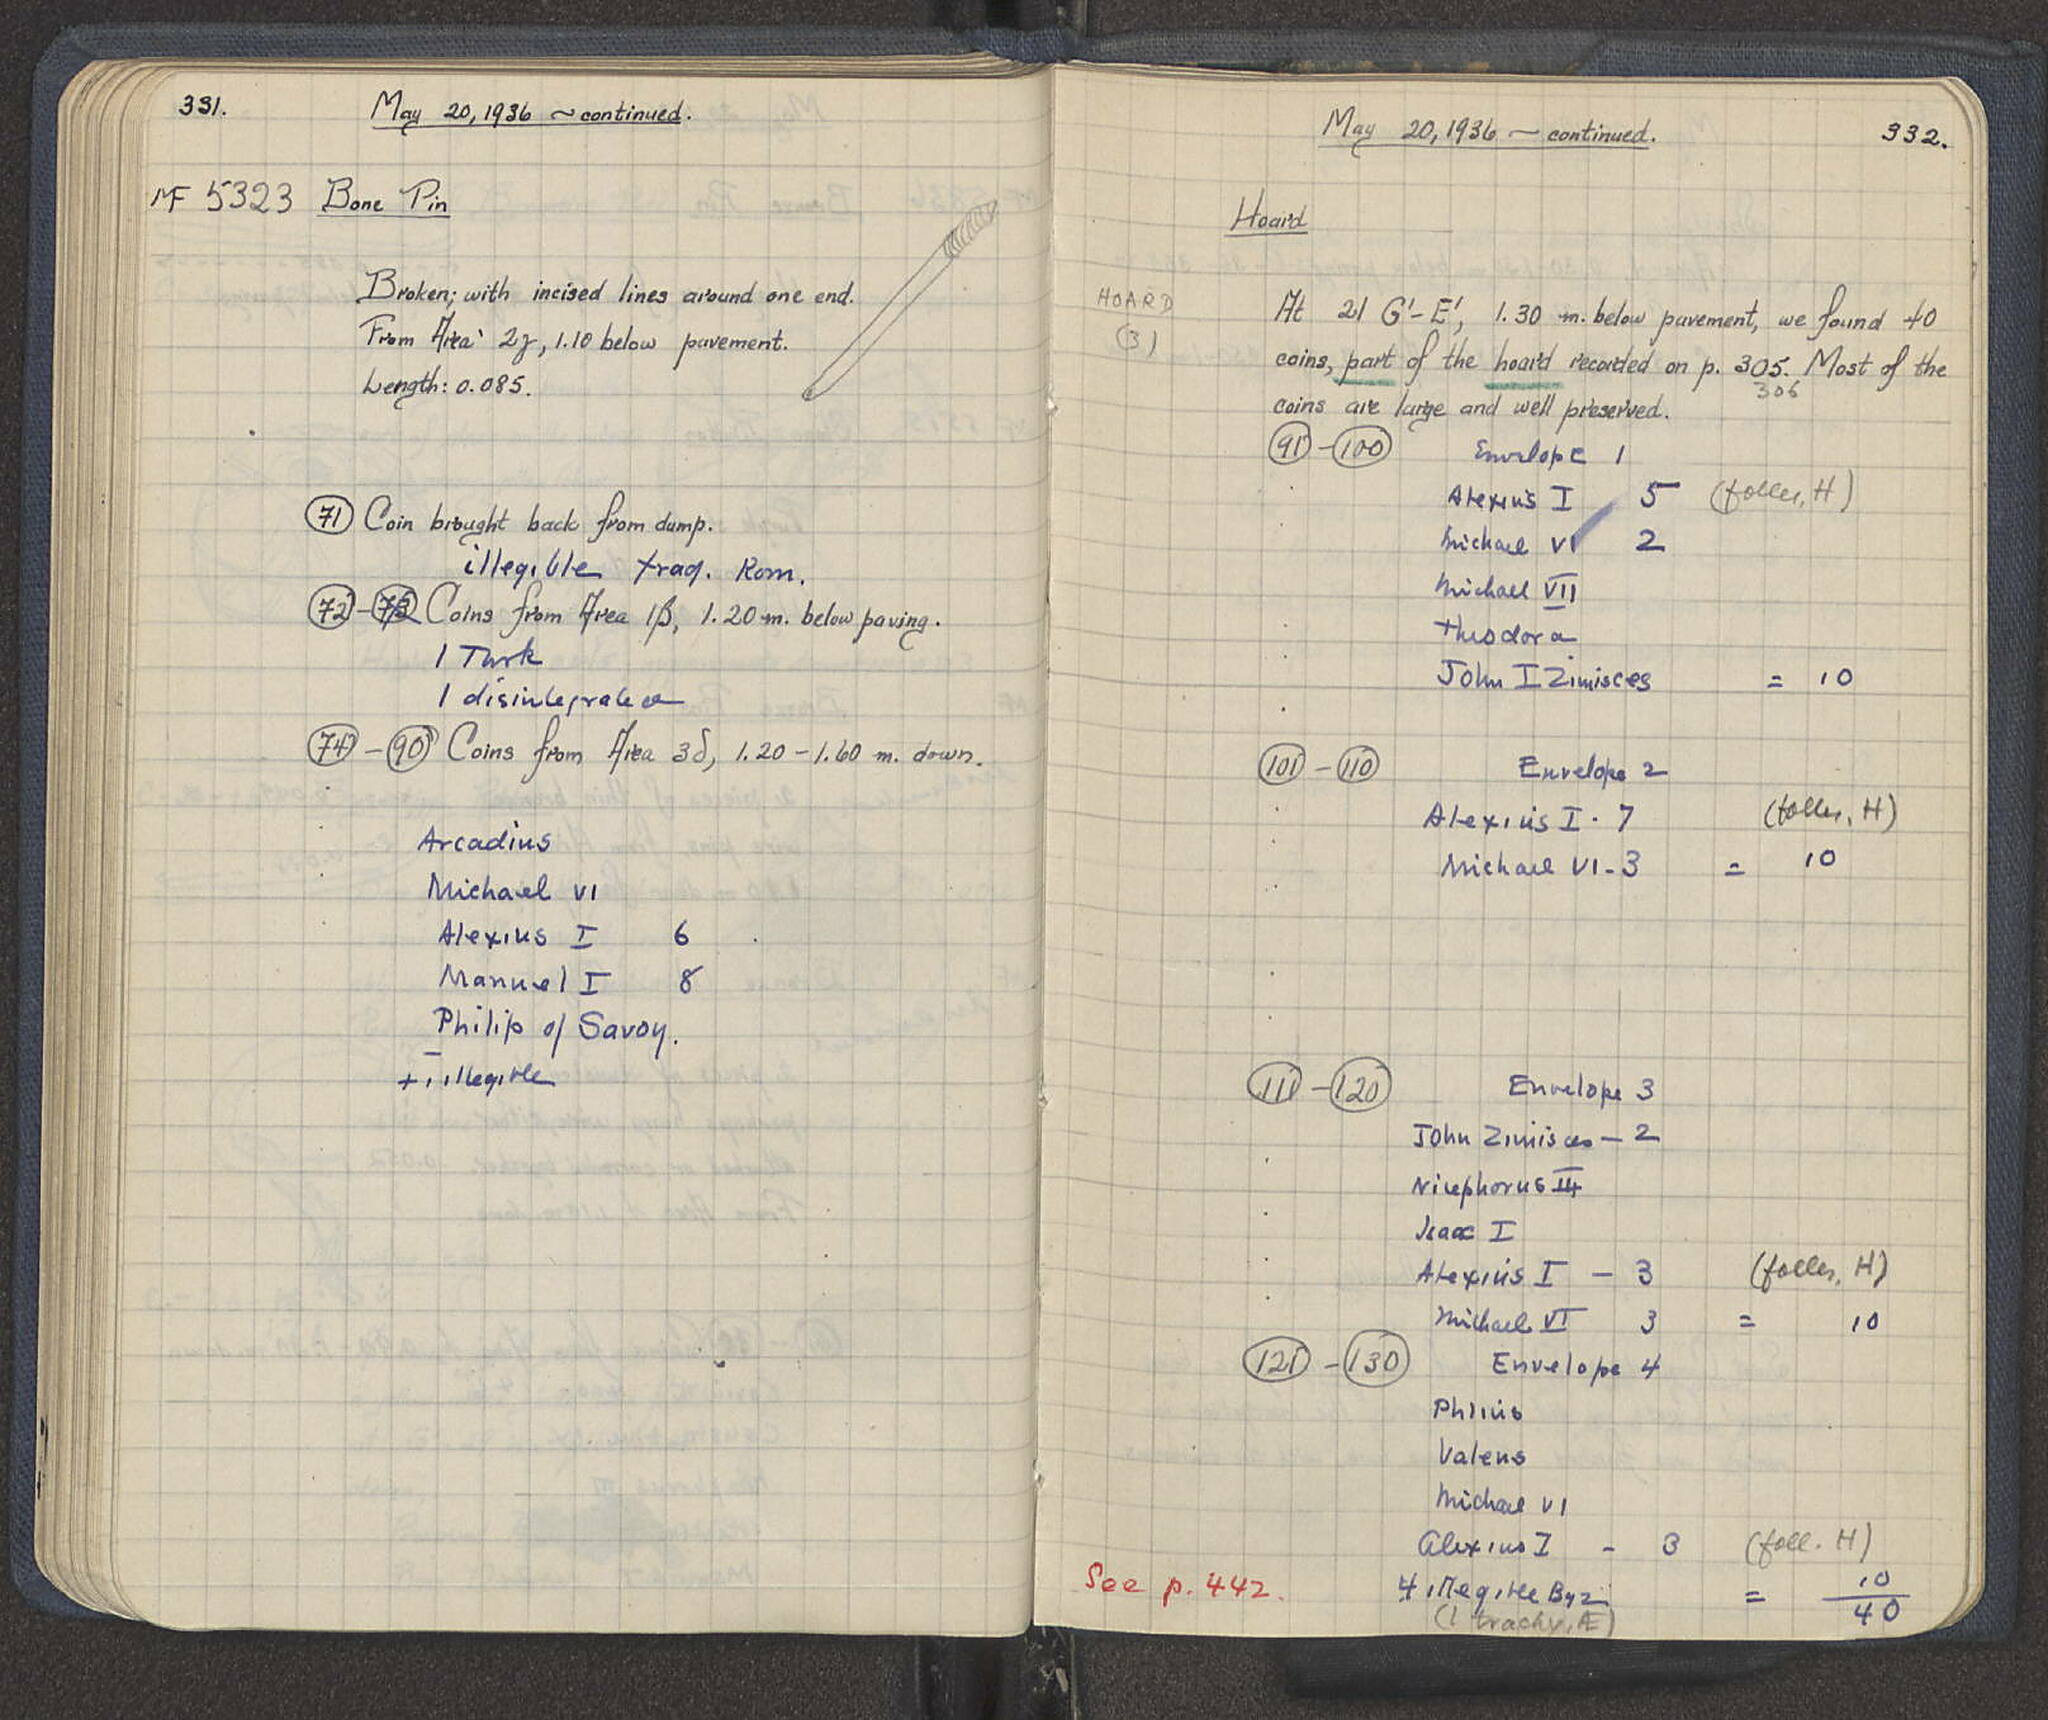 331.
May 20, 1936 ~ continued.
MF 5323 Bone Pin
Broken; with incised lines around one end.
From Area 2γ, 1.10 below pavement.
Length: 0.085.
71 Coin brought back from dump.
illegible frag. Rom.
72 - 73 Coins from Area 1β, 1.20 m. below paving.
1 Turk
1 disintegrated
74 - 90 Coins from Area 3δ, 1.20 - 1.60 m. down.
Arcadius
Michael VI
Alexius I 6
Manuel I 8
Philip of Savoy.
illegible
May 20, 1936 ~ continued.
332.
Hoard
HOARD
(3)
At 21 G'-E', 1.30 m. below pavement, we found 40
coins, part of the hoard recorded on p. 305. Most of the
306
coins are large and well preserved.
91 - 100 Envelope 1
Alexius I 5 (folles, H)
Michael VI 2
Michael VII
Theodora
John I Zimisces = 10
101 - 110 Envelope 2
Alexius I · 7 (folles, H)
Michael VI - 3 = 10
111 - 120 Envelope 3
John Zimisces - 2
Nicephorus III
Isaac I
Alexius I - 3 (folles, H)
Michael VI 3 = 10
121 - 130 Envelope 4
Phlius
Valens
Michael VI
Alexius I - 3 (foll. H)
See p. 442.
4 illegible Byz = 10
(1 trachy, Æ)
40